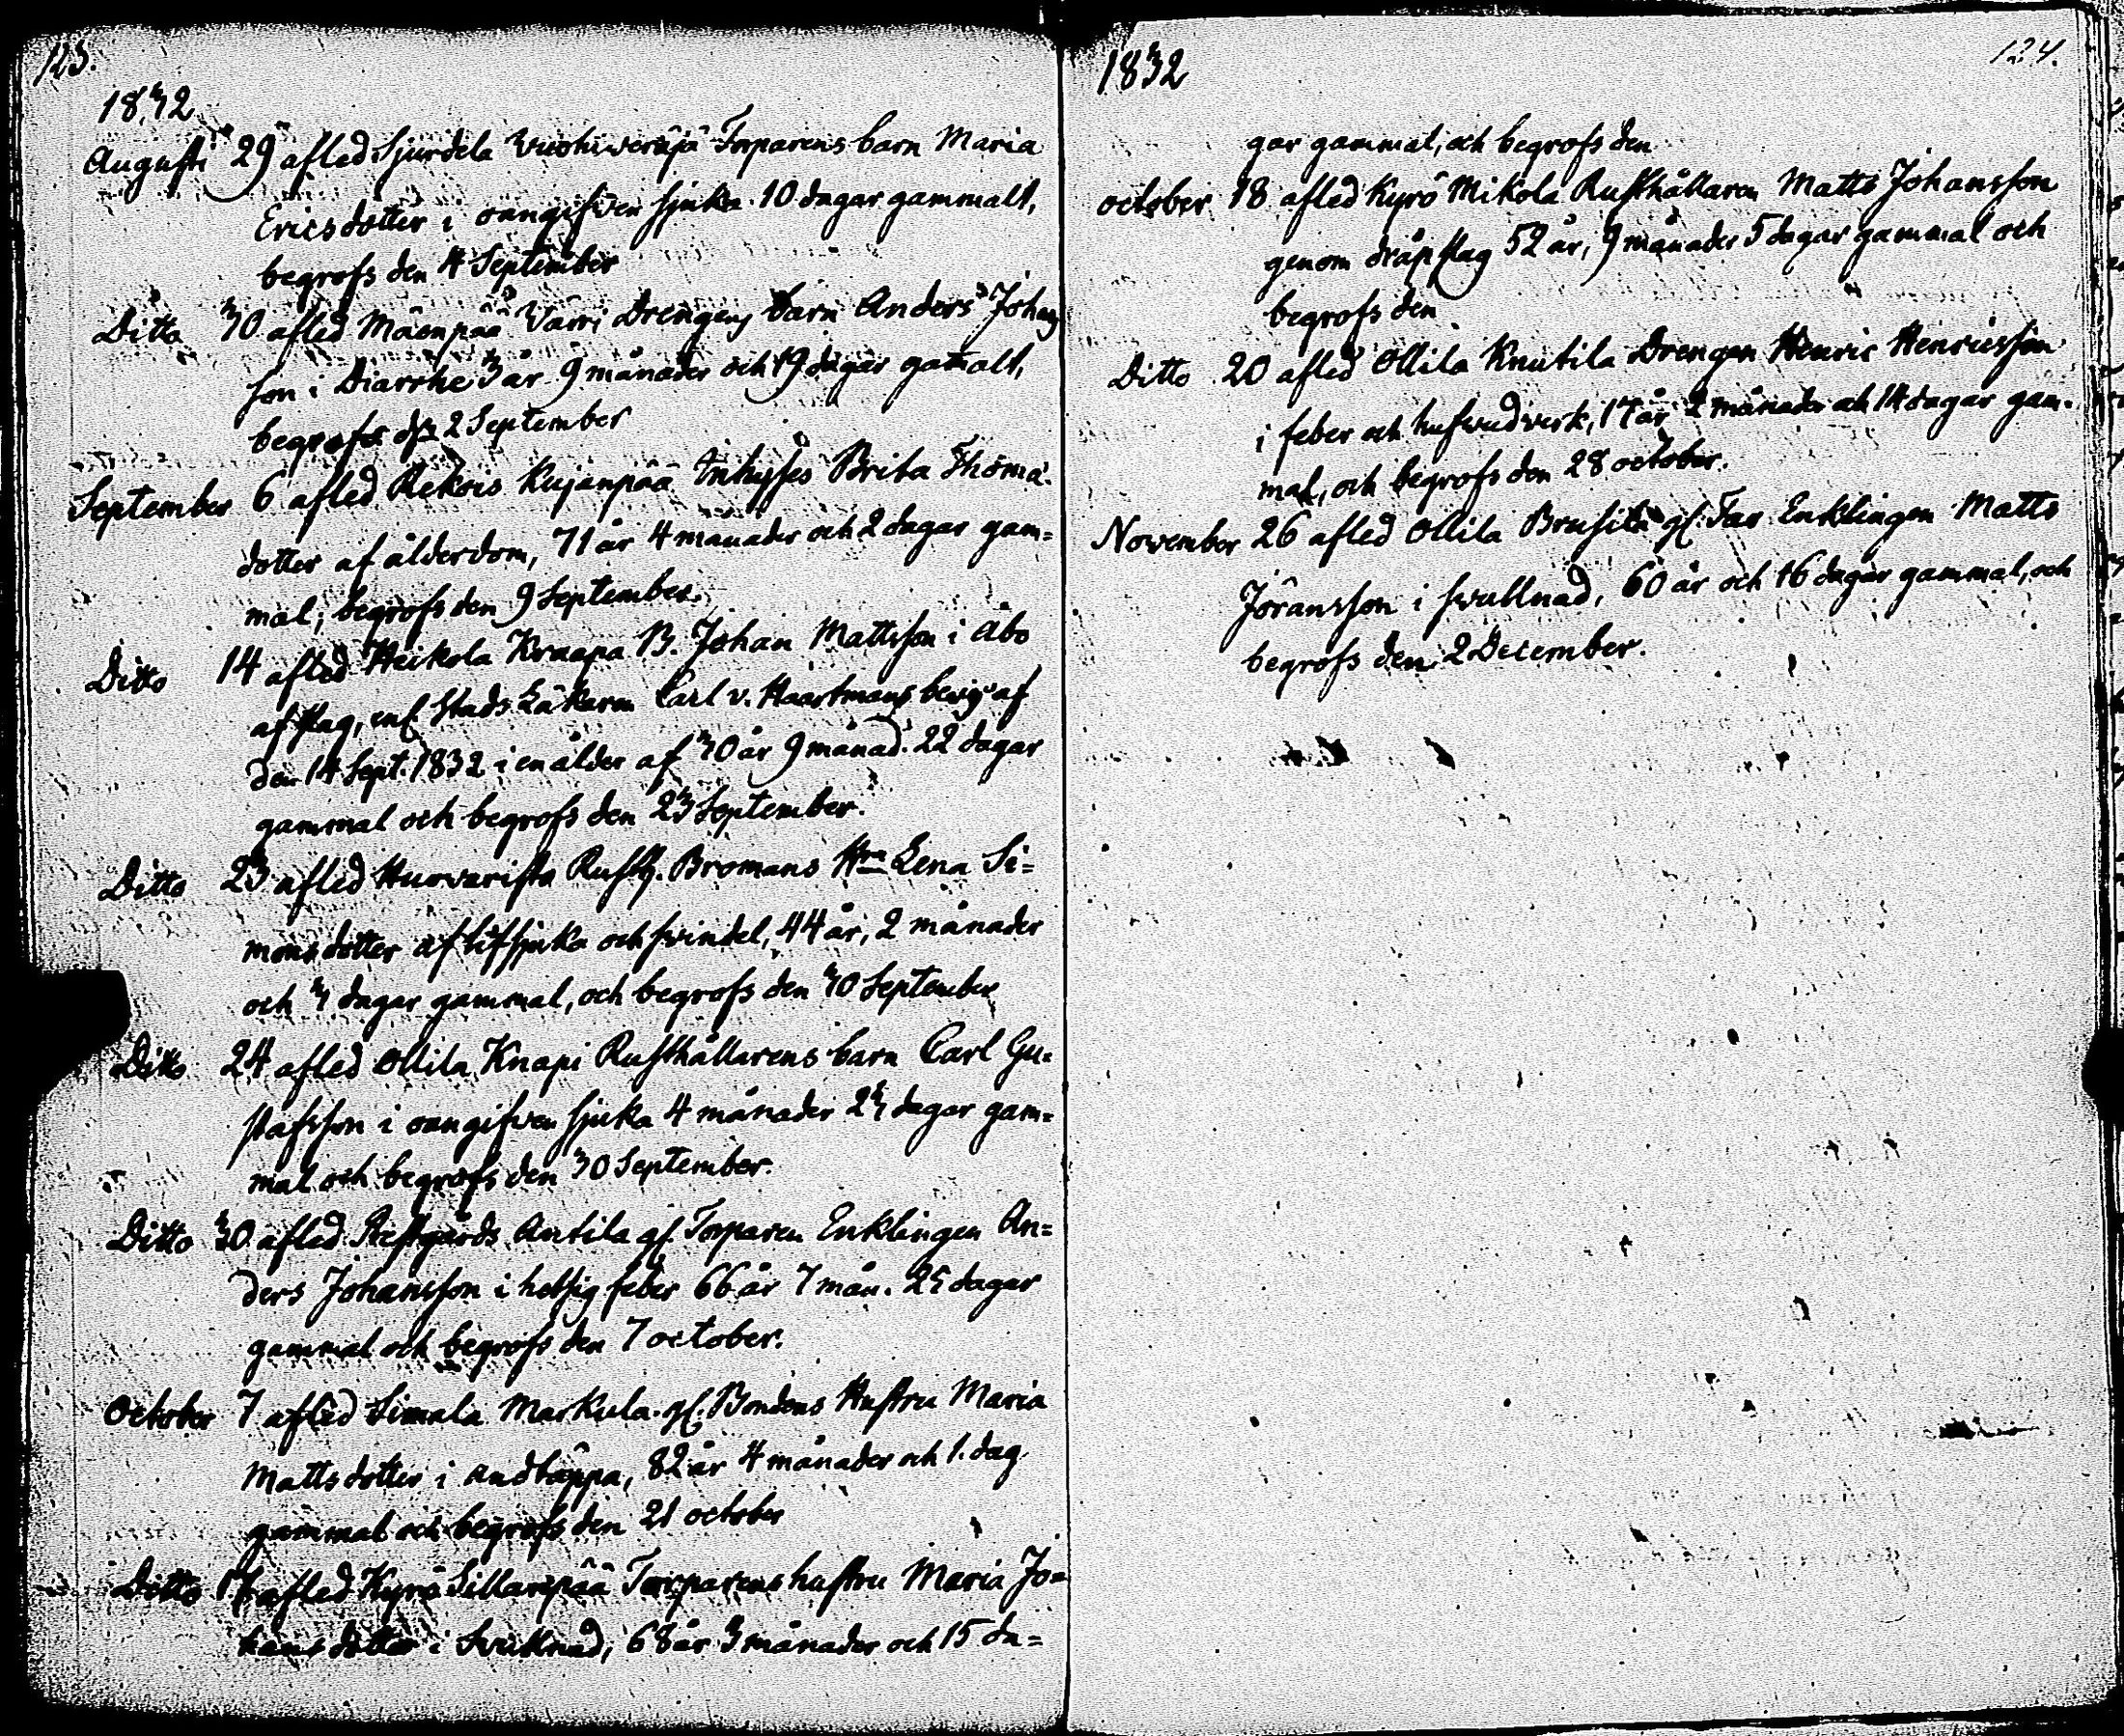 123.
1832
Augusti 29 afled Sjurdela Vuohiveräjä Torparens barn Maria
Ericsdotter i oangifven sjuka 10 dagar gammalt,
begrofs den 4 September
Ditto 30 afled Mäenpää Värri Drengens barn Anders Johans
son i Diarrhe 3 år 9 månader och 19 dagar gamalt,
begrofs d. 2 September
September 6 afled Rekois Kujanpää Inhyses Brita Thoma
dotter af ålderdom, 71 år 4 månader och 2 dagar gam=
mal, begrofs den 9 September.
Ditto 14 afled Heikola Kraapa B. Johan Mattsson i Åbo
af slag, enl. Stads Läkaren Carl v. Haartmans bevis af
den 14 Sept. 1832 i en ålder af 30 år 9 månad. 22 dagar
gammal och begrofs den 23 September.
Ditto 23 afled Hurvarista Rusth. Bromans Hru Lena Si=
monsdotter af lifsjuka och svindel, 44 år, 2 månader
och 3 dagar gammal, och begrofs den 30 September
Ditto 24 afled Ollila Knapi Rusthållarens barn Carl Gu=
stafsson i oangifven sjuka 4 månader 23 dagar gam=
mal och begrofs den 30 September.
Ditto 30 afled Prestgårds Antila gl. Torparen Enklingen An=
ders Johansson i hetsig feber 66 år 7 mån. 25 dagar
gammal och begrofs den 7 october.
October 7 afled Simala Markula gl. Bondens Hustru Maria
Mattsdotter i andtäppa, 82 år 4 månader och 1. dag
gammal och begrofs den 21 october
Ditto 17 afled Kyrö Sillanpää Torparens hustru Maria Jo=
hansdotter i Svullnad, 68 år 3 månader och 15 da=
124.
1832
gar gammal, och begrofs den
october 18 afled Kyrö Mikola Rusthållaren Matts Johansson
genom dråpslag 52 år, 9 månader 5 dagar gammal och
begrofs den
Ditto 20 afled Ollila Knutila Drengen Henric Henricsson
i feber och hufvudverk, 17 år 2 månader och 14 dagar gam=
mal, och begrofs den 28 october.
November 26 afled Ollila Brusila gl. Far Enklingen Matts
Jöransson i svullnad, 60 år och 16 dagar gammal, och
begrofs den 2 December.